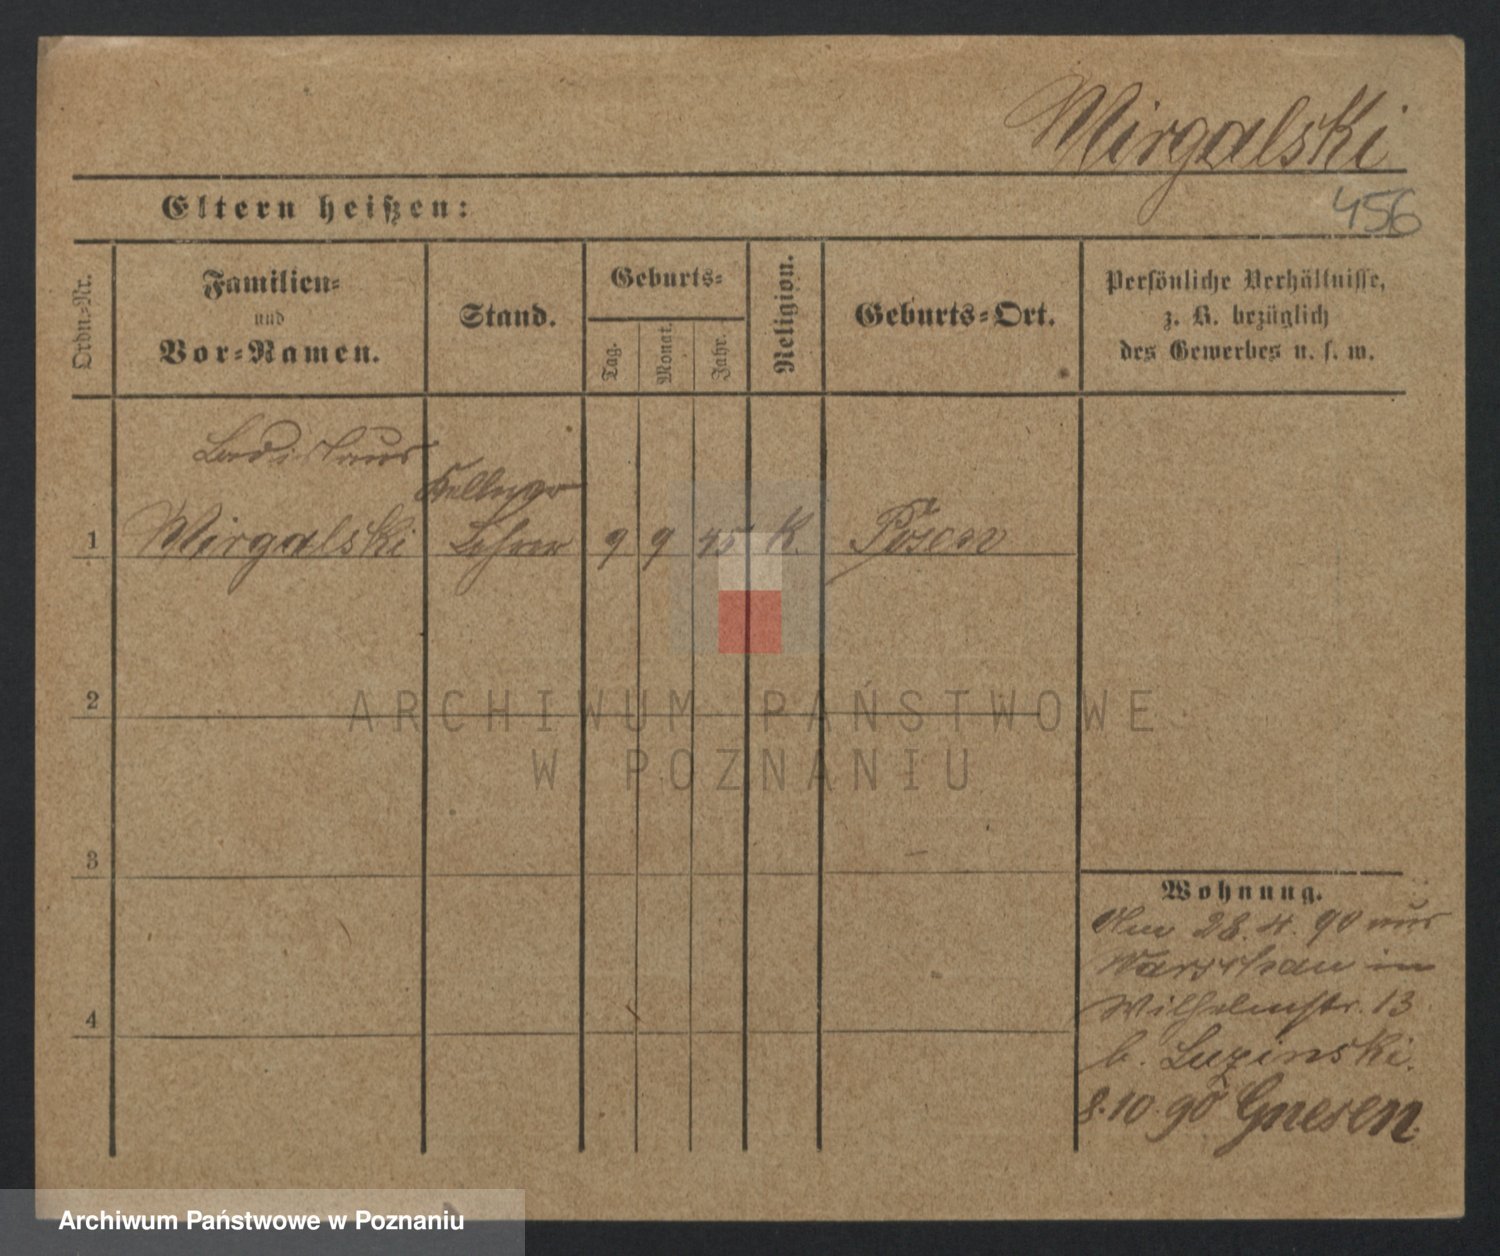 Mirgalski
456
Eltern heißen:
Ordn.-Nr.
Familien-
und
Vor-Namen.
Stand.
Geburts-
Tag.
Monat.
Jahr.
Religion.
Geburts-Ort.
Persönliche Verhältnisse,
z. B. bezüglich
des Gewerbes u. s. w.
Ladislaus
Kellner
1 Mirgalski Lehrer 9 9 45 K. Posen
2
ARCHIWUM PAŃSTWOWE
W POZNANIU
3
Wohnung.
Am 28.4.90 aus
Warschau in
4
Wilhelmstr. 13
b. Luzinski.
8.10.90 Gnesen.
Archiwum Państwowe w Poznaniu